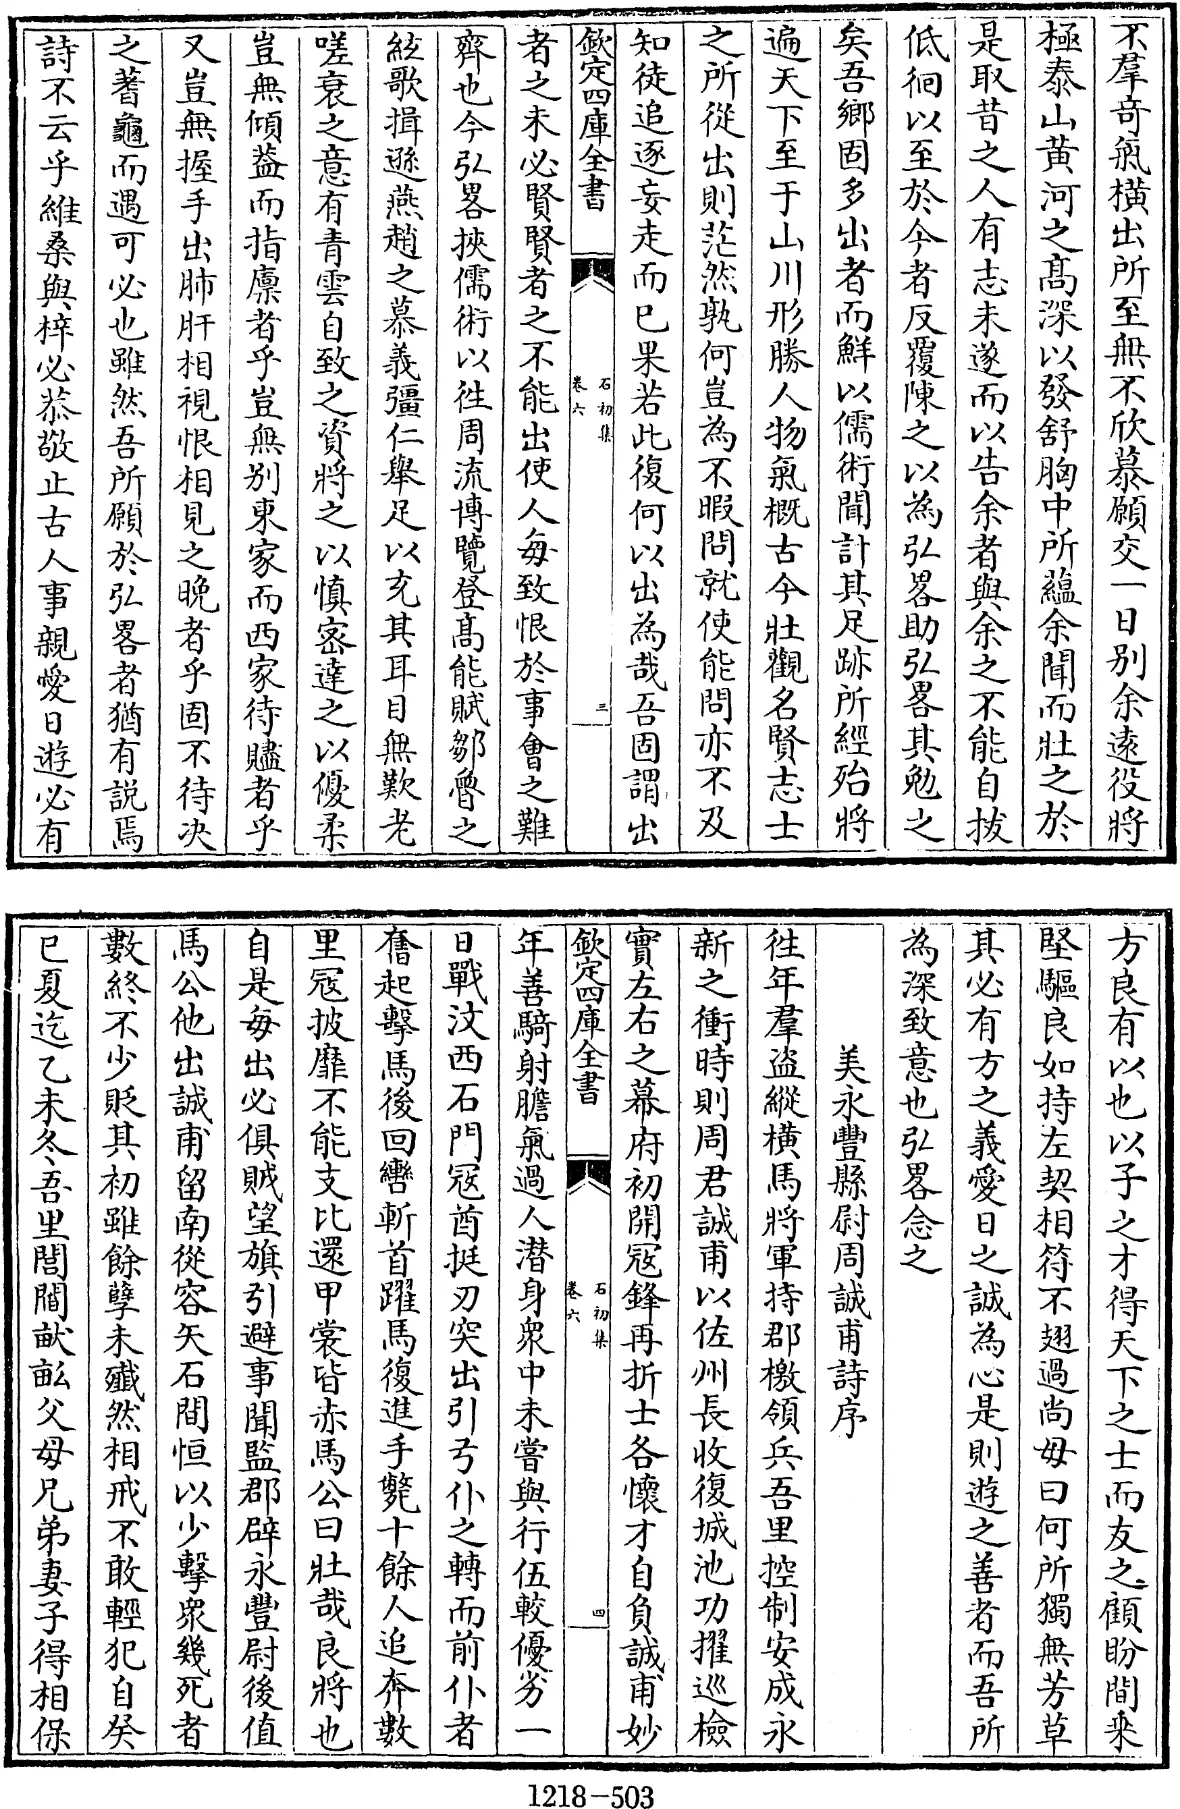 不羣奇氣橫出所至無不欣慕願交一日别余逺役將
極泰山黄河之髙深以發舒胸中所藴余聞而壯之於
是取昔之人有志未遂而以告余者與余之不能自拔
低徊以至於今者反覆陳之以為弘畧助弘畧其勉之
矣吾鄉固多出者而鮮以儒術聞計其足跡所經殆將
遍天下至于山川形勝人物氣概古今壯觀名賢志士
之所從出則茫然孰何豈為不暇問就使能問亦不及
知徒追逐妄走而已果若此復何以出為哉吾固謂出
欽定四庫全書
石初集
卷六
三
者之未必賢賢者之不能出使人每致恨於事㑹之難
齊也今弘畧挾儒術以徃周流博覽登髙能賦鄒魯之
絃歌揖遜燕趙之慕義彊仁舉足以充其耳目無歎老
嗟衰之意有青雲自致之資將之以慎宻達之以優柔
豈無傾葢而指廪者乎豈無别東家而西家待贐者乎
又豈無握手出肺肝相視恨相見之晚者乎固不待决
之蓍龜而遇可必也雖然吾所願於弘畧者猶有説焉
詩不云乎維桑與梓必恭敬止古人事親愛日遊必有
方良有以也以子之才得天下之士而友之顧盼間乗
堅驅良如持左契相符不翅過尚毋曰何所獨無芳草
其必有方之義愛日之誠為心是則遊之善者而吾所
為深致意也弘畧念之
美永豐縣尉周誠甫詩序
徃年羣盗縱横馬將軍持郡檄領兵吾里控制安成永
新之衝時則周君誠甫以佐州長收復城池功擢巡檢
實左右之幕府初開冦鋒再折士各懷才自負誠甫妙
欽定四庫全書
石初集
卷六
四
年善騎射膽氣過人潜身衆中未嘗與行伍較優劣一
日戰汶西石門冦酋挺刃突出引弓仆之轉而前仆者
奮起擊馬後回轡斬首躍馬復進手斃十餘人追奔數
里冦披靡不能支比還甲裳皆赤馬公曰壯哉良將也
自是每出必俱賊望旗引避事聞監郡辟永豐尉後值
馬公他出誠甫留南從容矢石間恒以少擊衆幾死者
數終不少貶其初雖餘孽未殲然相戒不敢輕犯自癸
巳夏迄乙未冬吾里閭閻畎畝父母兄弟妻子得相保
1218-503